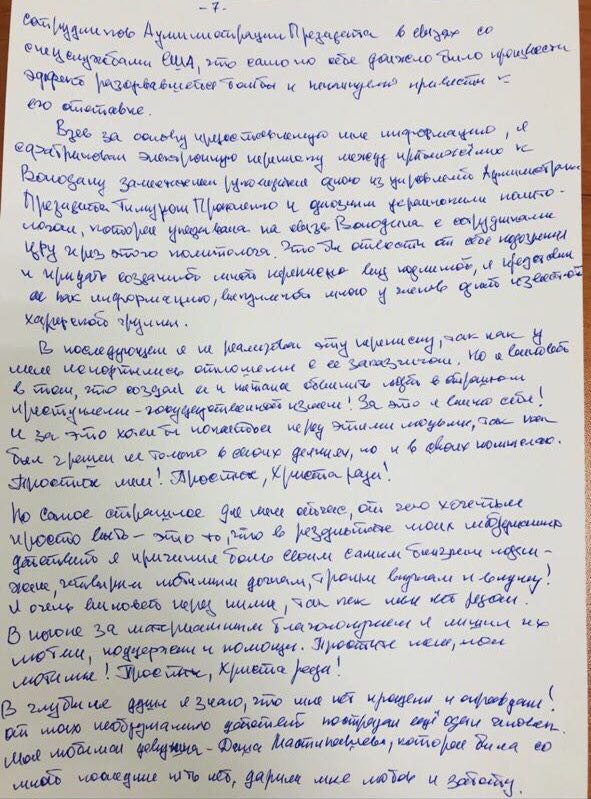 - 7 -
сотрудников Администрации Президента в связях со
спецслужбами США, что само по себе должно было произвести
эффект разорвавшейся бомбы и неминуемо привести к
его отставке.
Взяв за основу предоставленную мне информацию, я
сфабриковал электронную переписку между приближённым к
Володину заместителем руководителя одного из управлений Администрации
Президента Тимуром Прокопенко и одиозным украинским полито-
логом, которая указывала на связь Володина с сотрудниками
ЦРУ через этого политолога. Что бы отвести от себя подозрения
и придать созданной мной переписке вид подлинной, я представил
ее как информацию, выкупленную мною у членов одной известной
хакерской группы.
В последующем я не реализовал эту переписку, так как у
меня испортились отношения с ее заказчиком. Но я виноват
в том, что создал ее и пытался обвинить людей в страшном
преступлении - государственной измене! За это я виню себя!
И за это хотел бы покаяться перед этими людьми, так как
был грешен не только в своих деяниях, но и в своих помыслах.
Простите меня! Простите, Христа ради!
Но самое страшное для меня сейчас, от чего хочется
просто выть - это то, что в результате моих необдуманных
действий я причинил боль своим самым близким людям -
жене, четверым любимым дочкам, троим внучкам и внуку!
Я очень виноват перед ними, так как мне нет
В погоне за материальным благополучием я лишил их
любви, поддержки и помощи. Простите меня, мои
любимые! Простите, Христа ради!
В глубине души я знаю, что мне нет прощения и оправдания!
От моих необдуманных действий пострадал ещё один человек.
Моя любимая девушка - Дарья, которая была со
мной последние пять лет, дарила мне любовь и заботу.